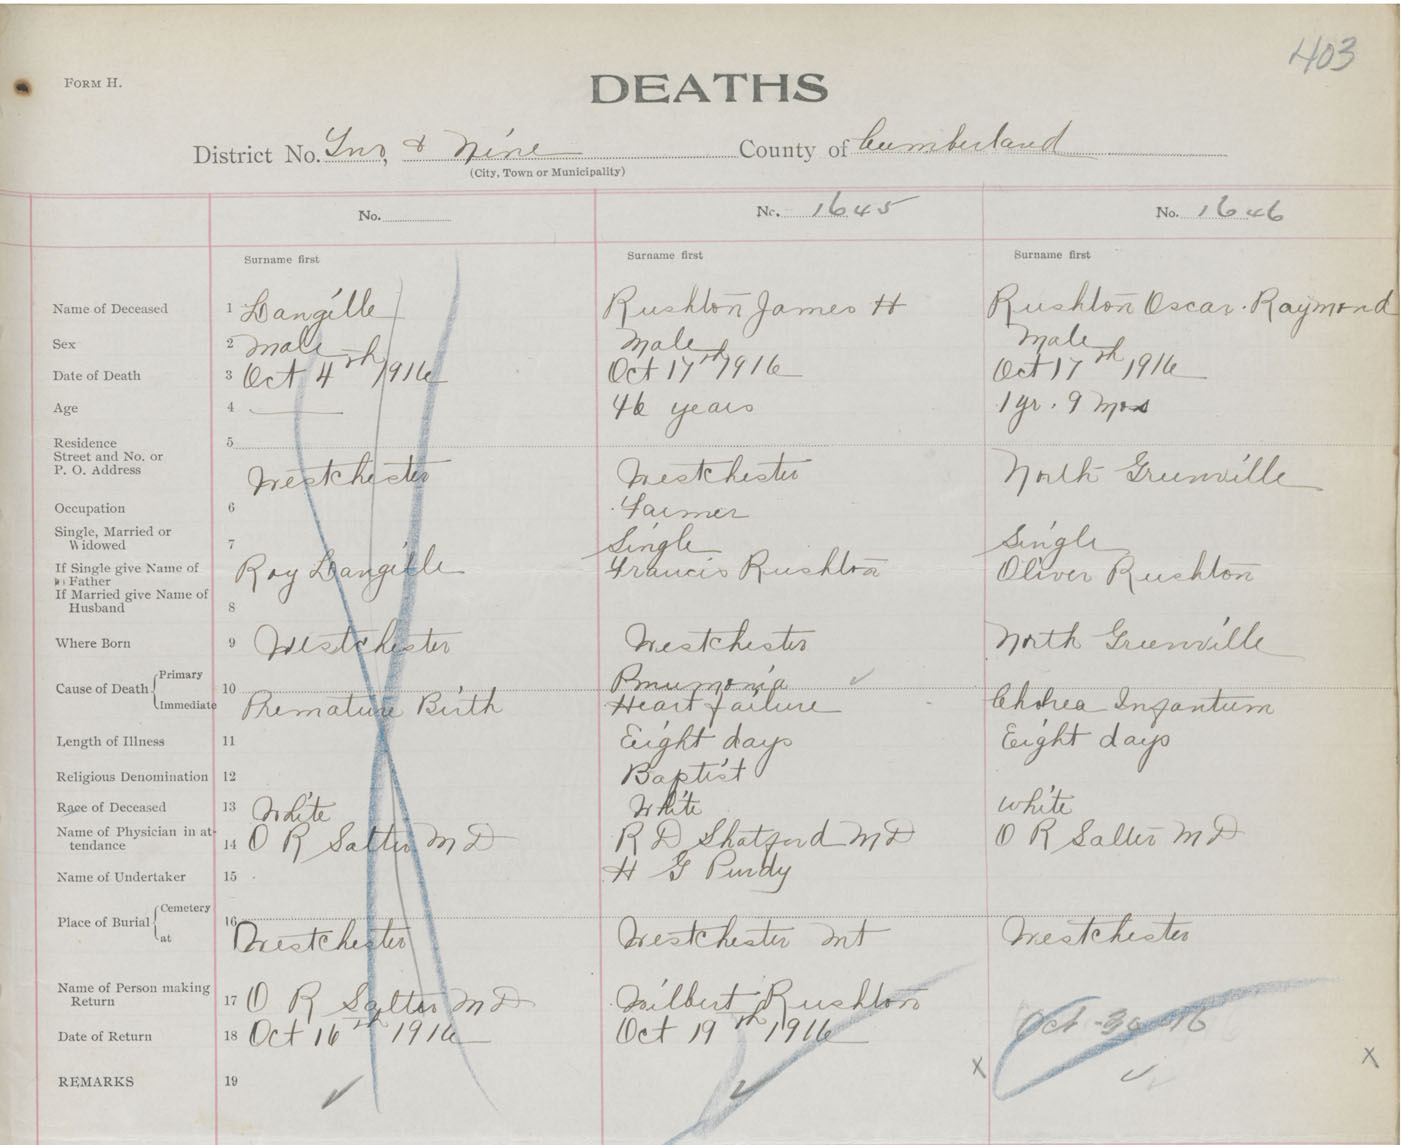 403
FORM H.
DEATHS
District No. Two, & Nine County of Cumberland
(City, Town or Municipality)
No. No. 1645 No. 1646
Surname first Surname first Surname first
Name of Deceased 1 Langille Rushton James H Rushton Oscar Raymond
Sex 2 Male Male Male
Date of Death 3 Oct 4th 1916 Oct 17th 1916 Oct 17th 1916
Age 4 — 46 years 1 yr. 9 mos
Residence
Street and No. or
P. O. Address 5 Westchester Westchester North Greenville
Occupation 6 Farmer
Single, Married or
Widowed 7 Single Single
If Single give Name of
Father Roy Langille Francis Rushton Oliver Rushton
If Married give Name of
Husband 8
Where Born 9 Westchester Westchester North Greenville
Cause of Death Primary 10 Pnumonia
Immediate Premature Birth Heart failure Cholrea Infantum
Length of Illness 11 Eight days Eight days
Religious Denomination 12 Baptist
Race of Deceased 13 White White white
Name of Physician in at-
tendance 14 O R Salter M D R D Shatford M D O R Salter M D
Name of Undertaker 15 H G Purdy
Place of Burial Cemetery 16
at Westchester Westchester Mt Westchester
Name of Person making
Return 17 O R Salter M D Wilbert Rushton
Date of Return 18 Oct 16th 1916 Oct 19th 1916 Oct - 30 - 16
REMARKS 19 x x